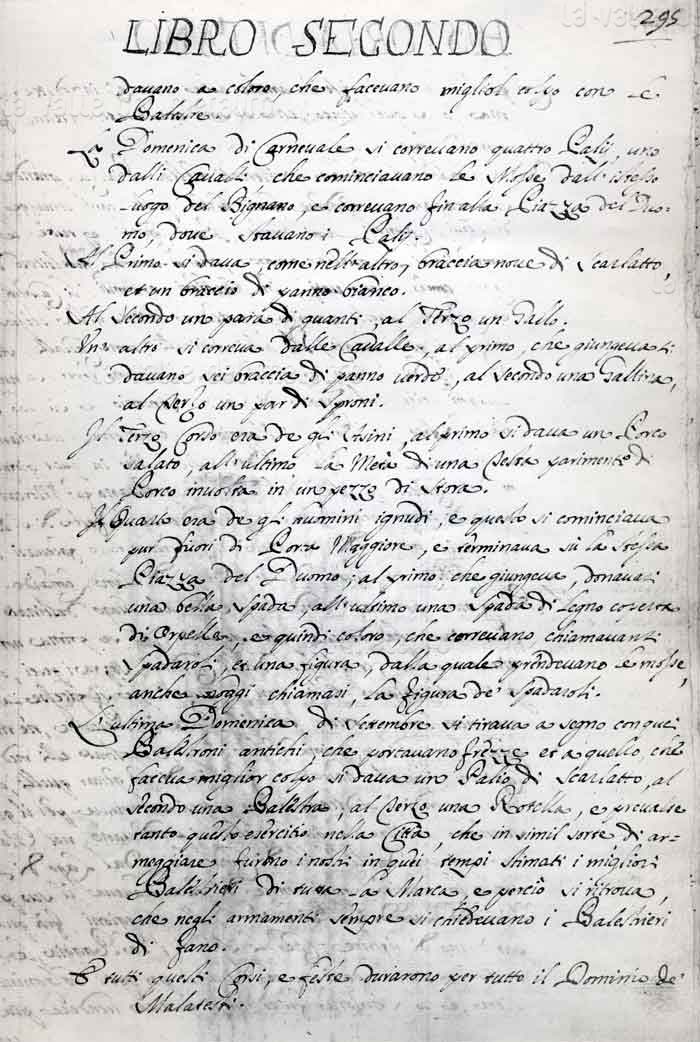 295
LIBRO SECONDO
davano a coloro, che facevano miglior colpo con le
Balestre.
La Domenica di Carnevale si correvano quattro Palij, uno
dalli Cavalli che cominciavano le Mosse dall'istesso
luogo del Bignano, e correvano fin alla Piazza del Duo-
mo, dove stavano i Palij.
Al Primo si dava, come nell'altro, braccia nove di Scarlatto,
et un braccio di panno bianco.
Al Secondo un para di guanti, al Terzo un Gallo.
Un altro si correva dalle Cavalle, al primo che giungeva si
davano sei braccia di panno verde, al Secondo una Gallina,
al Terzo un par di Sproni.
Il Terzo Corso era de gli Asini, al primo si dava un Porco
salato, all'ultimo la Metà di una Testa parimente di
Porco involta in un pezzo di Stora.
Il Quarto era de gli huomini ignudi, e questo si cominciava
pur fuori di Porta Maggiore, e terminava sù la stessa
Piazza del Duomo; al primo, che giungeva, donavasi
una bella Spada, all'ultimo una Spada di legno coperta
di, e quindi coloro, che correvano chiamavansi
Spadaroli, et una figura, dalla quale prendevano le mosse,
anche hoggi chiamasi, la Figura de' Spadaroli.
L'ultima Domenica di Settembre si tirava a segno con quei
Balestroni antichi, che portavano frezze et a quello, che
faceva miglior colpo si dava un Palio di Scarlatto, al
secondo una Balestra, al Terzo una Rotella, e prevalse
tanto questo esercitio nella Città, che in simil sorte di ar-
meggiare furono i nostri in quei tempi stimati i migliori
Balestrieri di tutta la Marca, e perciò si ritrova,
che negli armamenti sempre si chiedevano i Balestrieri
di Fano.
E tutti questi Corsi, e feste durarono per tutto il Dominio de'
Malatesti.